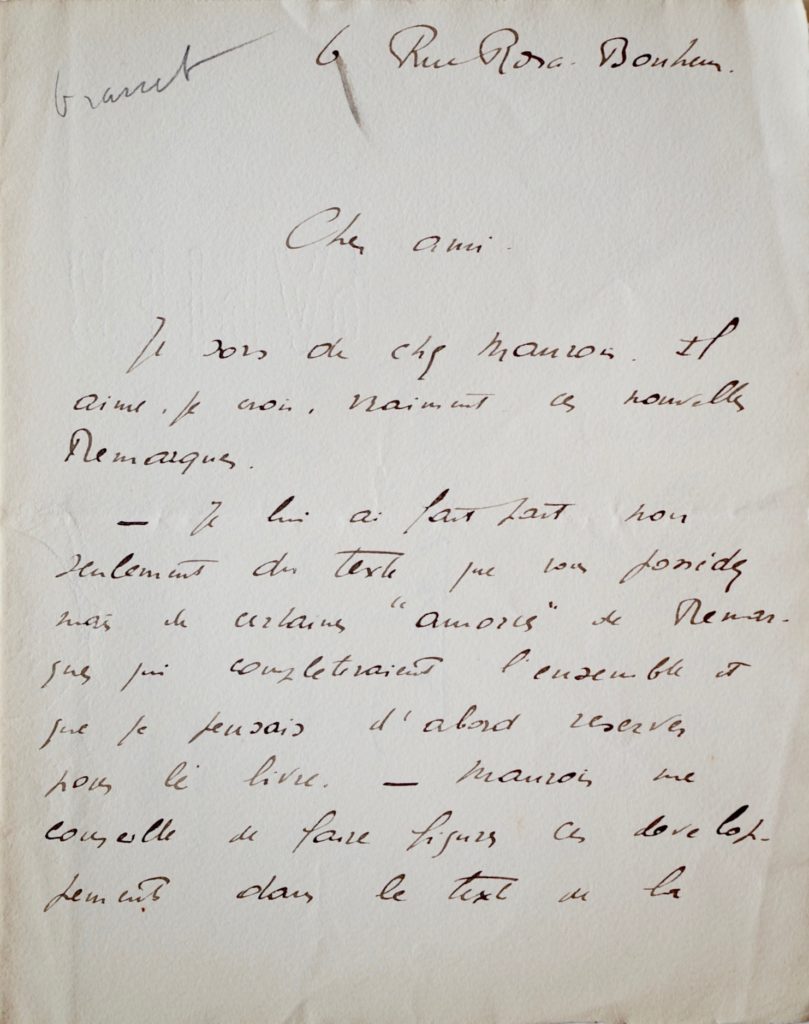 Grasset
6 Rue Rosa-Bonheur.
Cher ami.
Je sors de chez Maurois. Il
aime, je crois, vraiment ces nouvelles
Remarques.
— Je lui ai fait part non
seulement du texte que vous possédez
mais de certaines "amorces" de Remar-
ques qui completeraient l'ensemble et
que je pensais d'abord reserver
pour le livre. — Maurois me
conseille de faire figurer ces develop-
pements dans le texte de la